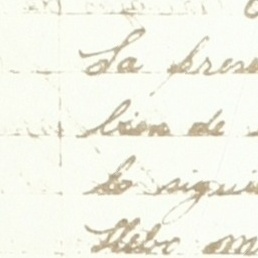 La prese
bien de
lo sigui
Hebe m